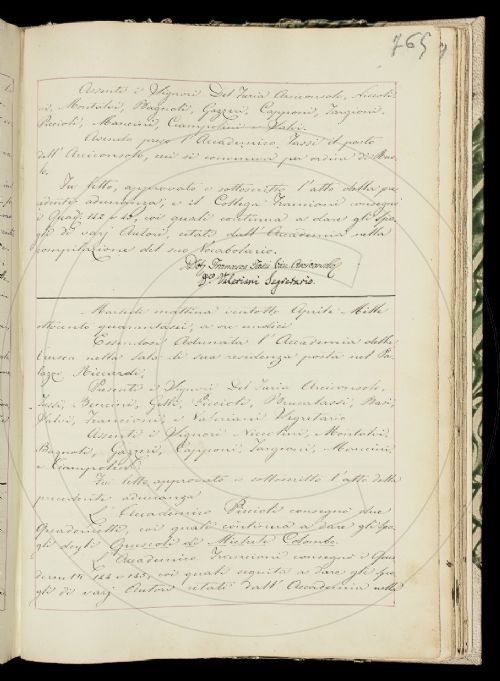 765
Assenti i Signori Del Furia Arciconsolo, Niccoli-
ni, Montalvi, Bagnoli, Gazzeri, Capponi, Targioni,
Piccioli, Mancini, Ciampolini e Salvi.
Avendo preso l'Accademico Tassi il posto
dell'Arciconsolo, cui si conveniva per ordine di
Fu letto, approvato e sottoscritto l'atto della pre-
cedente adunanza, e il Collega Franceschi consegnò
i Quad. 142 e 43, coi quali continua a dare gli Spo-
gli di varj Autori, citati dall'Accademia nella
compilazione del suo Vocabolario.
Francesco Tassi Vice Arciconsolo
Valeriani Segretario.
Martedì mattina ventotto Aprile Mille
ottocento quarantassei, a ore undici
Essendosi Adunata l'Accademia della
Crusca nella Sala di sua residenza posta nel Pa-
lazzo Riccardi,
Presenti i Signori Del Furia Arciconsolo,
Tassi, Bencini, Gelli, Piccioli, Brucalassi, Basi,
Salvi, e Valeriani Segretario
Assenti i Signori Niccolini, Montalvi,
Bagnoli, Gazzeri, Capponi, Targioni, Mancini,
e Ciampolini
Fu letto approvato e sottoscritto l'atto della
precedente adunanza
L'Accademico Piccioli consegnò due
Quadernetti, coi quali continua a dare gli Spo-
gli degli Opuscoli di Michele Colombo.
L'Accademico consegnò i Qua-
derni 144 e 145, coi quali seguita a dare gli Spo-
gli di varj Autori citati dall'Accademia nella